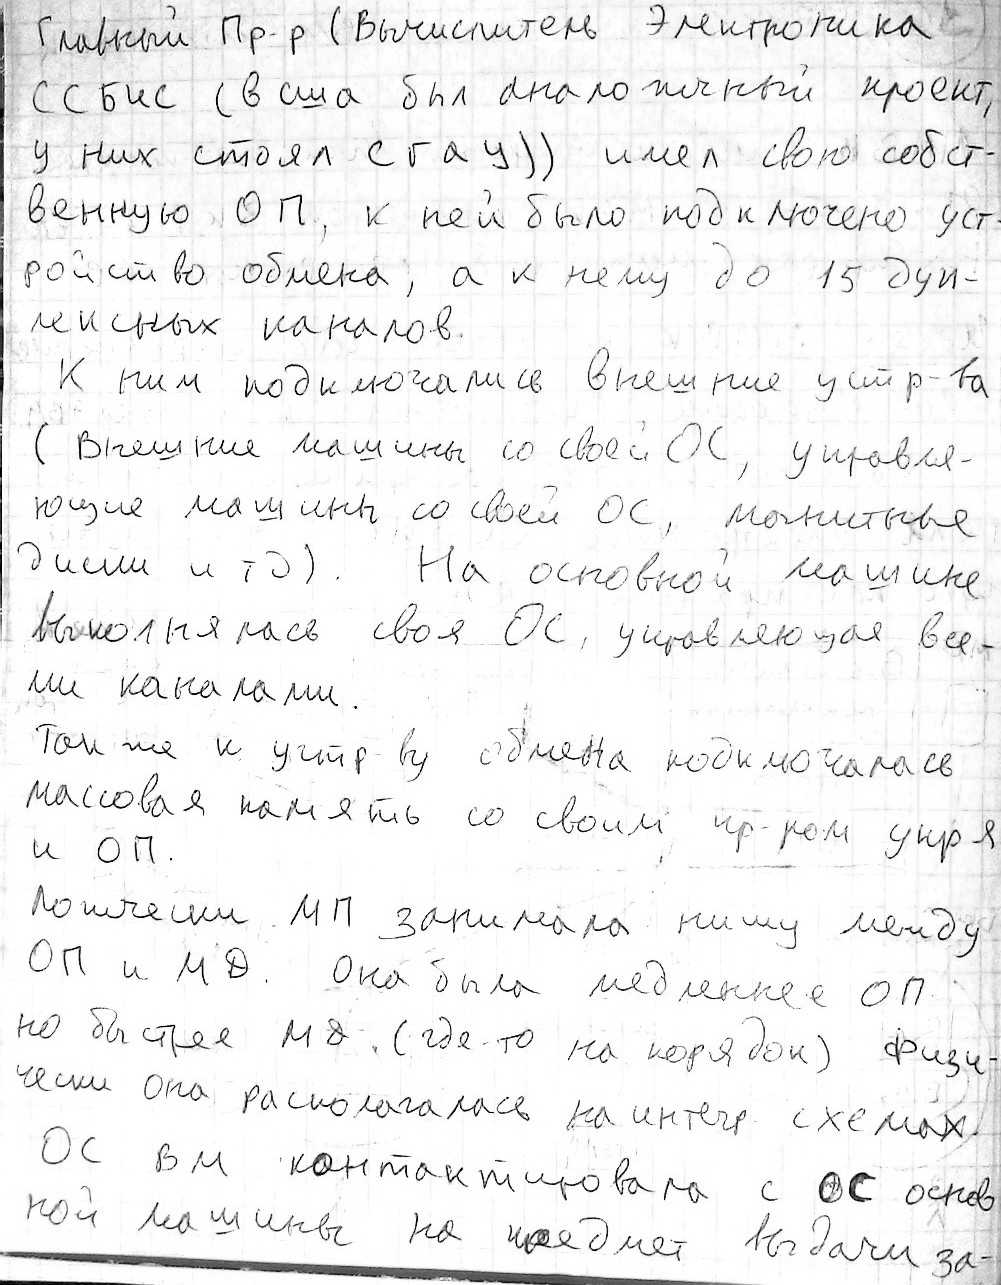 Главный Пр-р (Вычислитель Электроника
ССБИС (в сша был аналогичный проект,
у них стоял Cray)) имел свою собст-
венную ОП, к ней было подключено уст-
ройство обмена, а к нему до 15 дуп-
лексных каналов.
К ним подключались внешние устр-ва
(Внешние машины со своей ОС, управля-
ющие машины со своей ОС, магнитные
диски и тд). На основной машине
выполнялась своя ОС, управляющая все-
ми каналами.
Также к устр-ву обмена подключалась
массовая память со своим пр-ром упр-я
и ОП.
Логически МП занимала нишу между
ОП и МД. Она была медленнее ОП
но быстрее МД. (где-то на порядок) Физи-
чески она располагалась на интегр. схемах.
ОС ВМ контактировала с ОС основ
ной машины на предмет выдачи за-